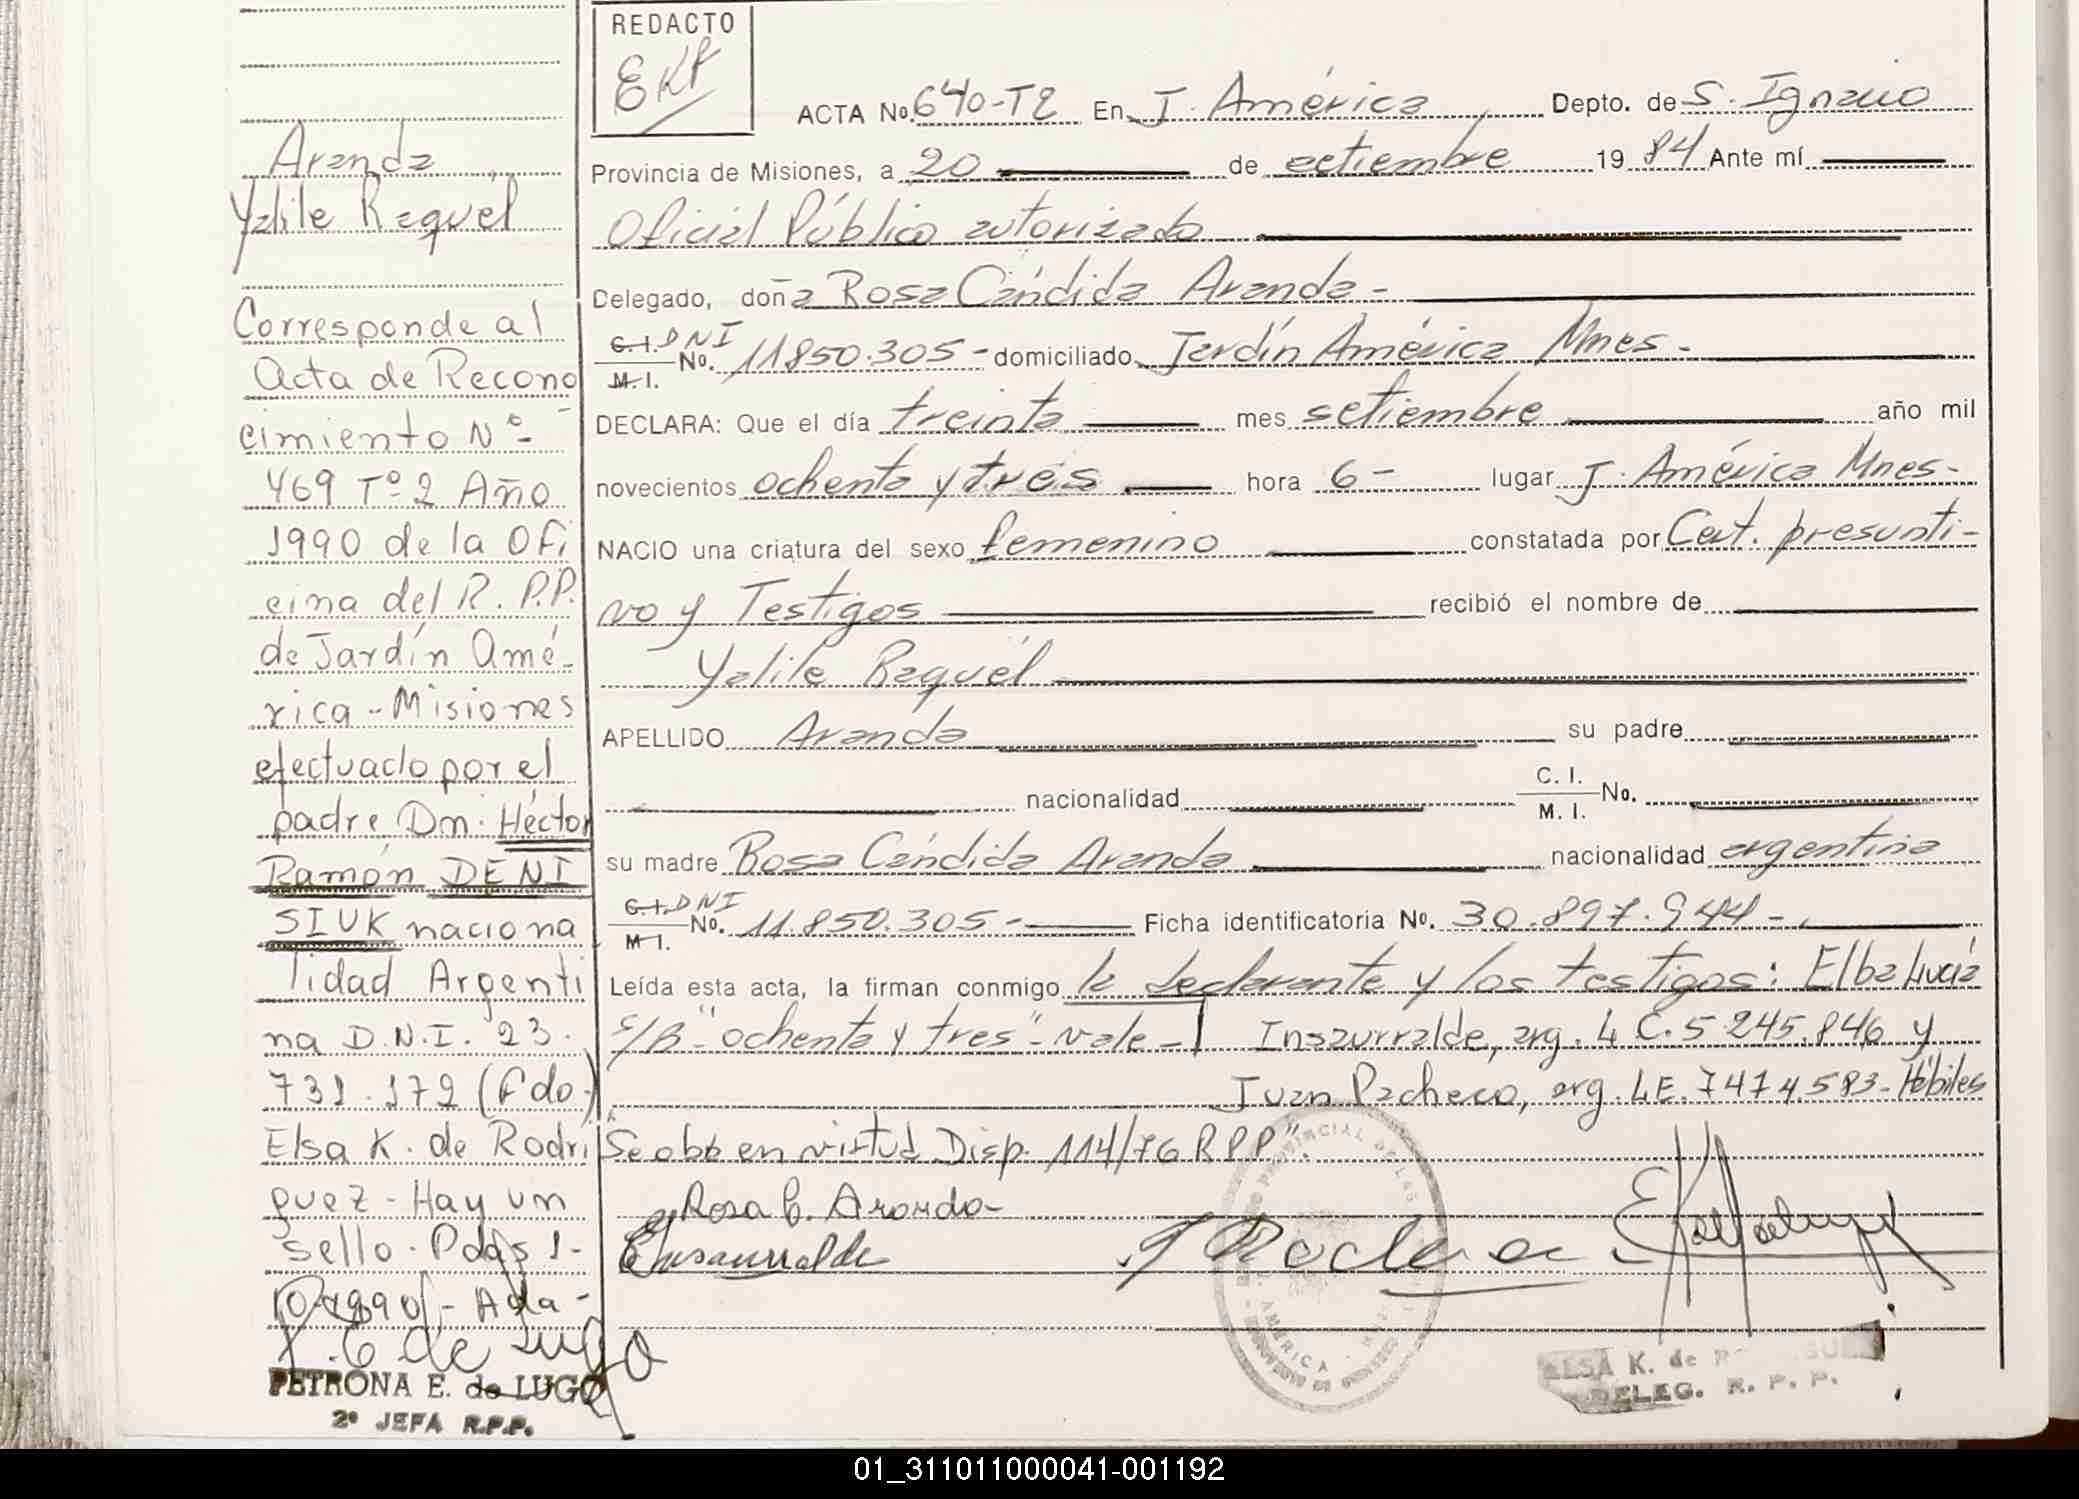 Aranda
Yalile Raquél
Corresponde al
Acta de Recono
cimiento Nº
469 Tº 2 Año
1990 de la Ofi
cina del R. P.P.
de Jardín Amé-
rica - Misiones
efectuado por el
padre Dn. Héctor
Ramón DENI
SIUK naciona
lidad Argenti
na D.N.I. 23.
731.179 (Fdo.)
Elsa K. de Rodri
guez - Hay un
sello. Pdas 1-
10-1990 -
PETRONA E. de LUGO
2º JEFA R.P.P.
REDACTO
EKR
ACTA No. 640-T2 En J. América Depto. de S. Ignacio
Provincia de Misiones, a 20 de setiembre 1984 Ante mí
Oficial Público autorizado
Delegado, doña Rosa Cándida Aranda -
C.I. DNI
M.I. No. 11850.305 - domiciliado Jardín América Mnes -
DECLARA: Que el día treinta mes setiembre año mil
novecientos ochenta y tres hora 6 - lugar J. América Mnes -
NACIO una criatura del sexo femenino constatada por Cert. presunti-
vo y Testigos recibió el nombre de
Yalile Raquél
APELLIDO Aranda su padre
nacionalidad C. I. M. I. No.
su madre Rosa Cándida Aranda nacionalidad argentina
C.I. DNI
M.I. No. 11.850.305 - Ficha identificatoria No. 30.897.944 -
Leída esta acta, la firman conmigo la declarante y los testigos: Elba Lucía
S/B "ochenta y tres" - vale - Insaurralde, arg. L C. 5 245.846 y
Juan Pacheco, arg. L.E. 7474.583 - Hábiles
Se obo en virtud Disp. 114/76 R P P".
Rosa C. Aranda
EInsaurralde
ELSA K. de
DELEG. R. P. P.
01_311011000041-001192